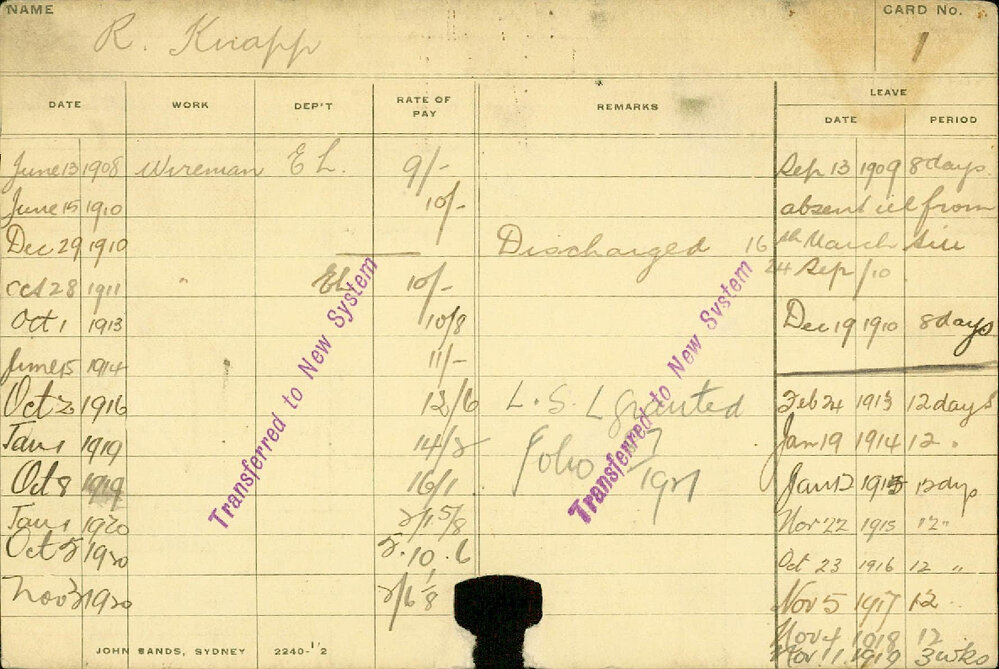 NAME
R. Knapp
CARD No.
1
DATE WORK DEP'T RATE OF PAY REMARKS LEAVE
DATE PERIOD
June 13 1908 Wireman E L. 9/- Sep 13 1909 8 days.
June 15 1910 10/- absent ill from
Dec 29 1910 Discharged 16th March till
24 Sep /10
Oct 28 1911 " EL 10/-
Oct 1 1913 10/8 Dec 19 1910 8 days
June 15 1914 11/-
Oct 2 1916 12/6 L. S. L granted Feb 24 1913 12 days
Jan 1 1919 14/2 Folio Jan 19 1914 12 "
Oct 8 1919 16/1 1921 Jan 12 1915 12 dys
Jan 1 1920 Nov 22 1915 12 "
Oct 5 1920 5.10.6 Oct 23 1916 12 "
Nov 1920 Nov 5 1917 12
Nov 4 1918 12
Nov 1 1919 3 wks
Transferred to New System
Transferred to New System
JOHN SANDS, SYDNEY 2240-